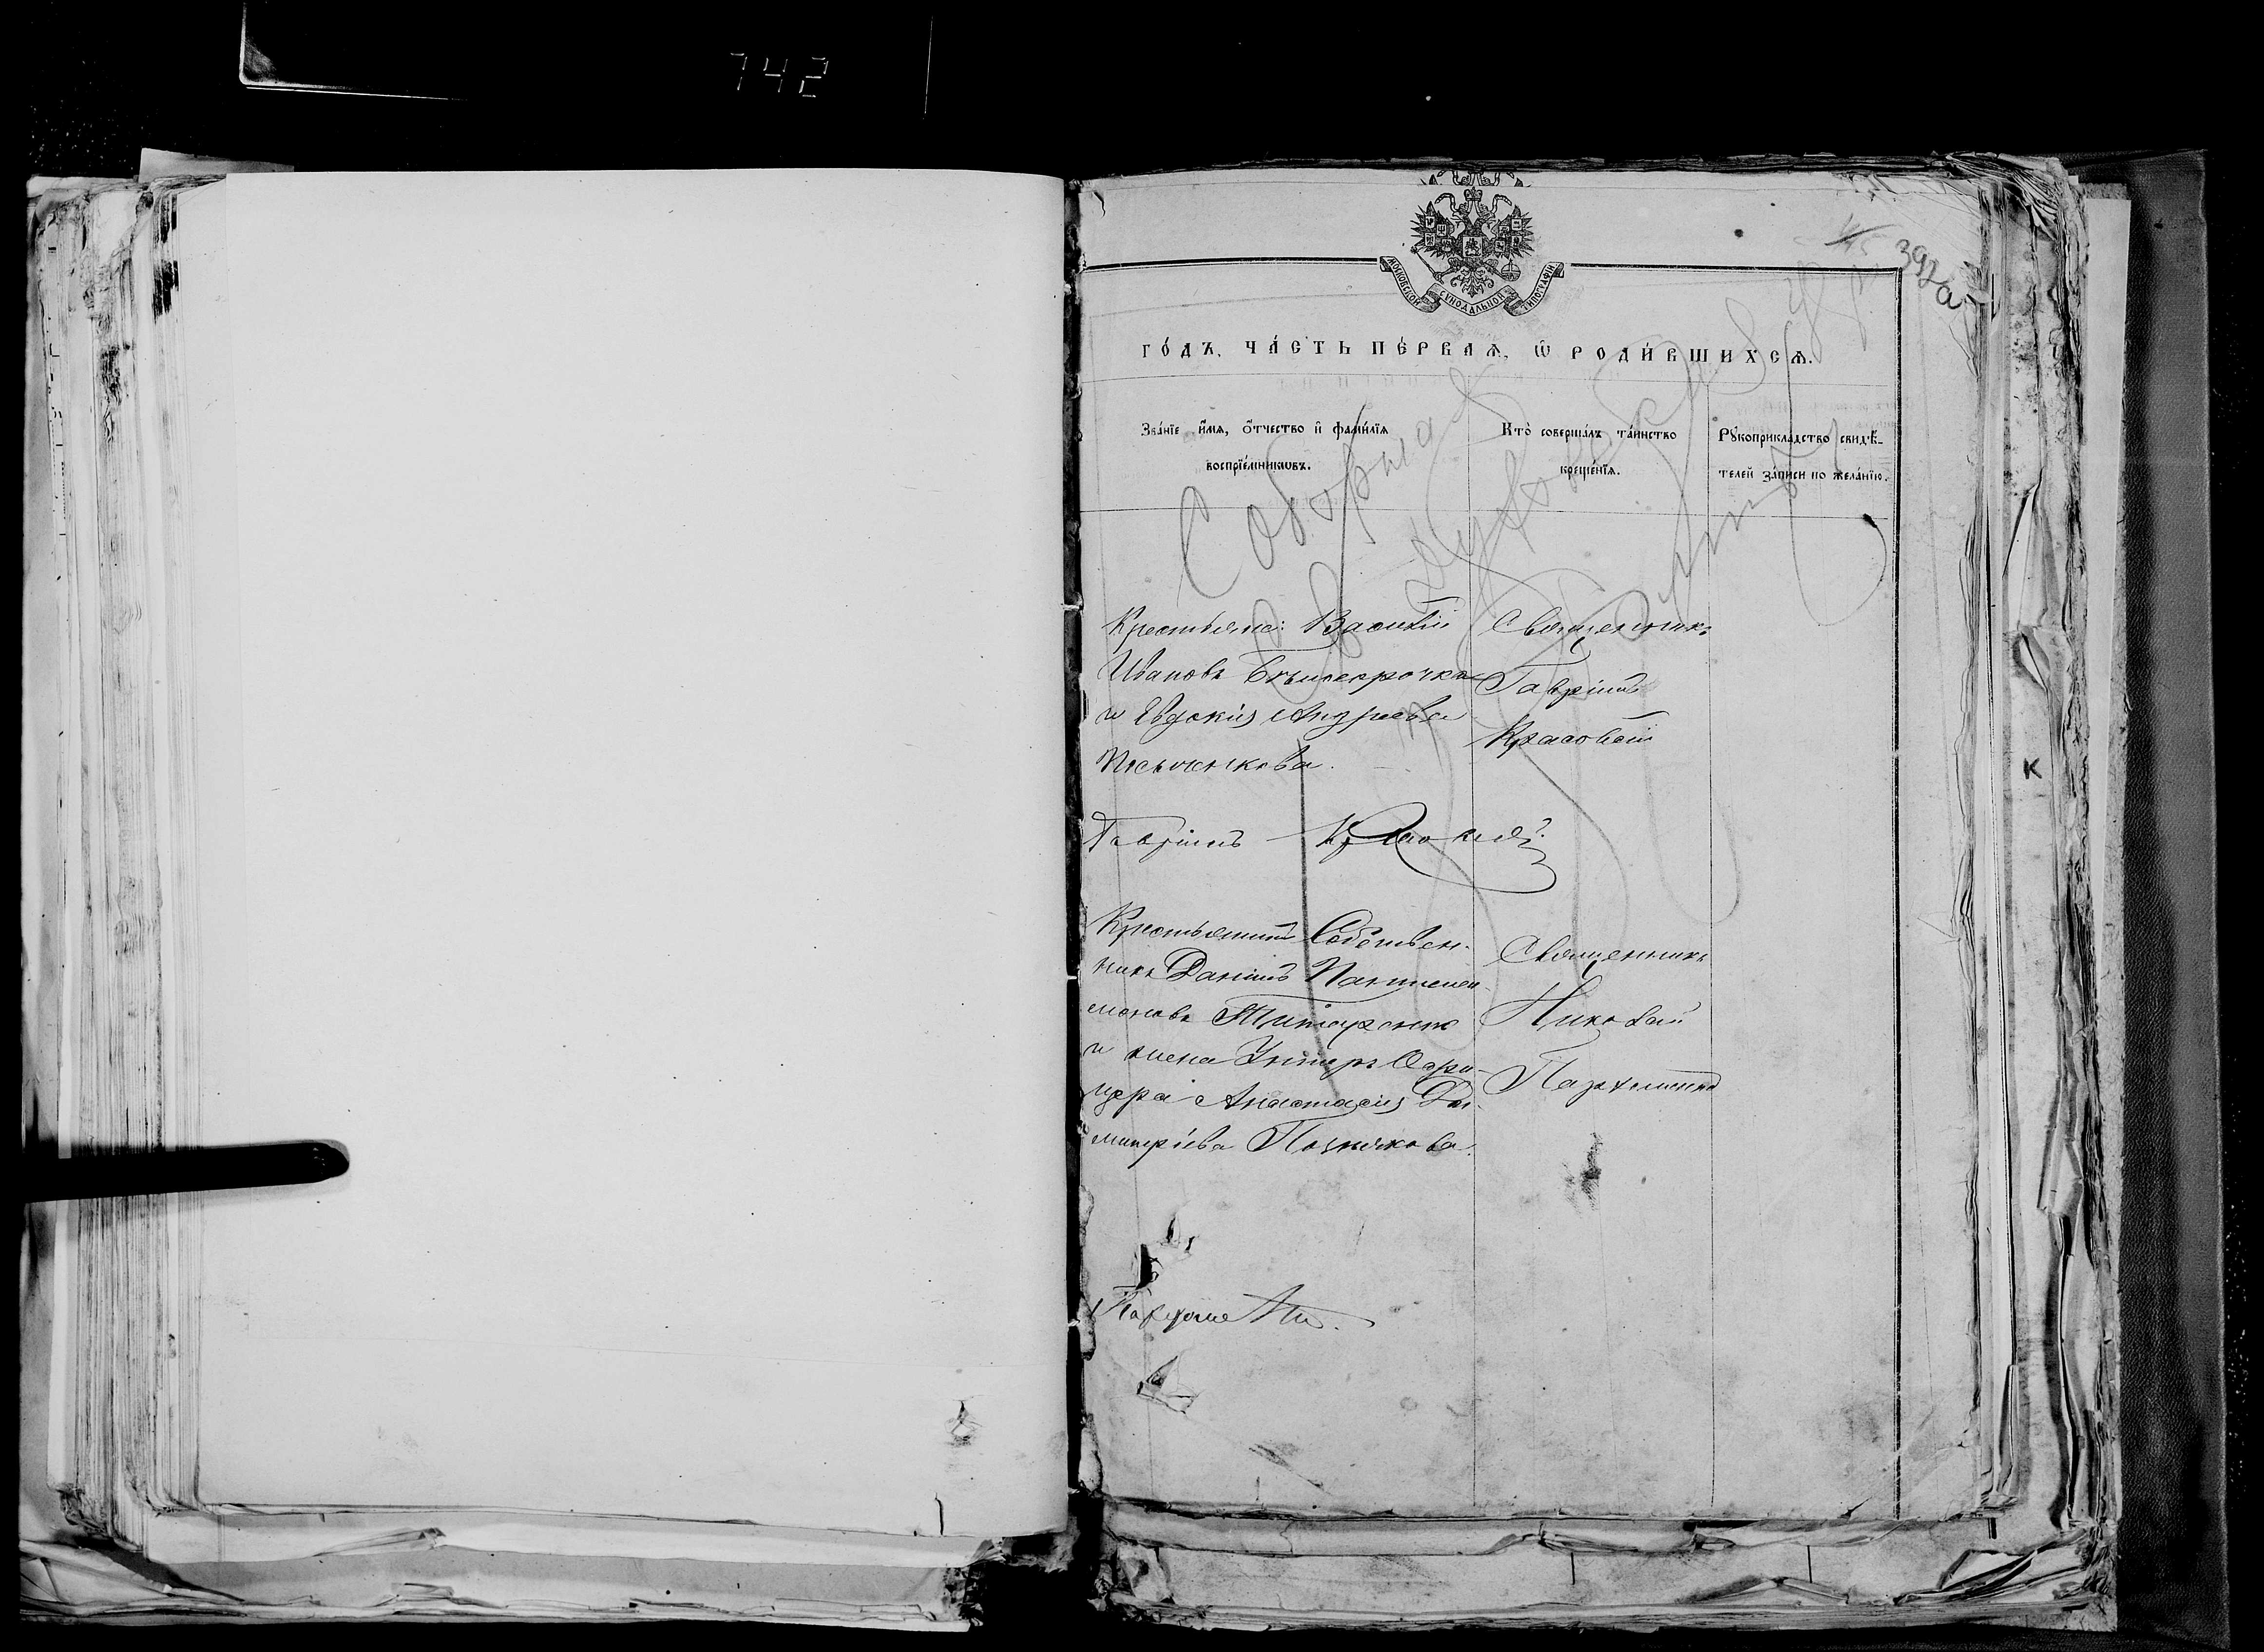 742
392а
МОСКОВСКОЙ СѴНОДАЛЬНОЙ ТИПОГРАФІИ
ГО́ДЪ, ЧА́СТЬ ПЕ́РВАѦ, Ѡ҆ РОДИ́ВШИХСѦ.
Зва́нїе и҆́мѧ, ѻ҆́тчество и҆ фами́лїѧ
воспрїе́мникѡвъ.
Кто̀ соверша́лъ та́инство
креще́нїѧ.
Рꙋкоприкла́дство свидѣ́-
телей за́писи по жела́нїю.
Соборная
Крестьяне: Василій
Ивановъ
и Евдокія Андреева
Священникъ
Гавріилъ
Красовскій
Гавріилъ
Крестьянинъ Собствен-
никъ Даніилъ Пантелей-
моновъ Титаренко
и жена Унтеръ Офи-
цера Анастасія Ди-
митріева Познякова.
Священникъ
Николай
Пархоменко
Пархоменко.
К